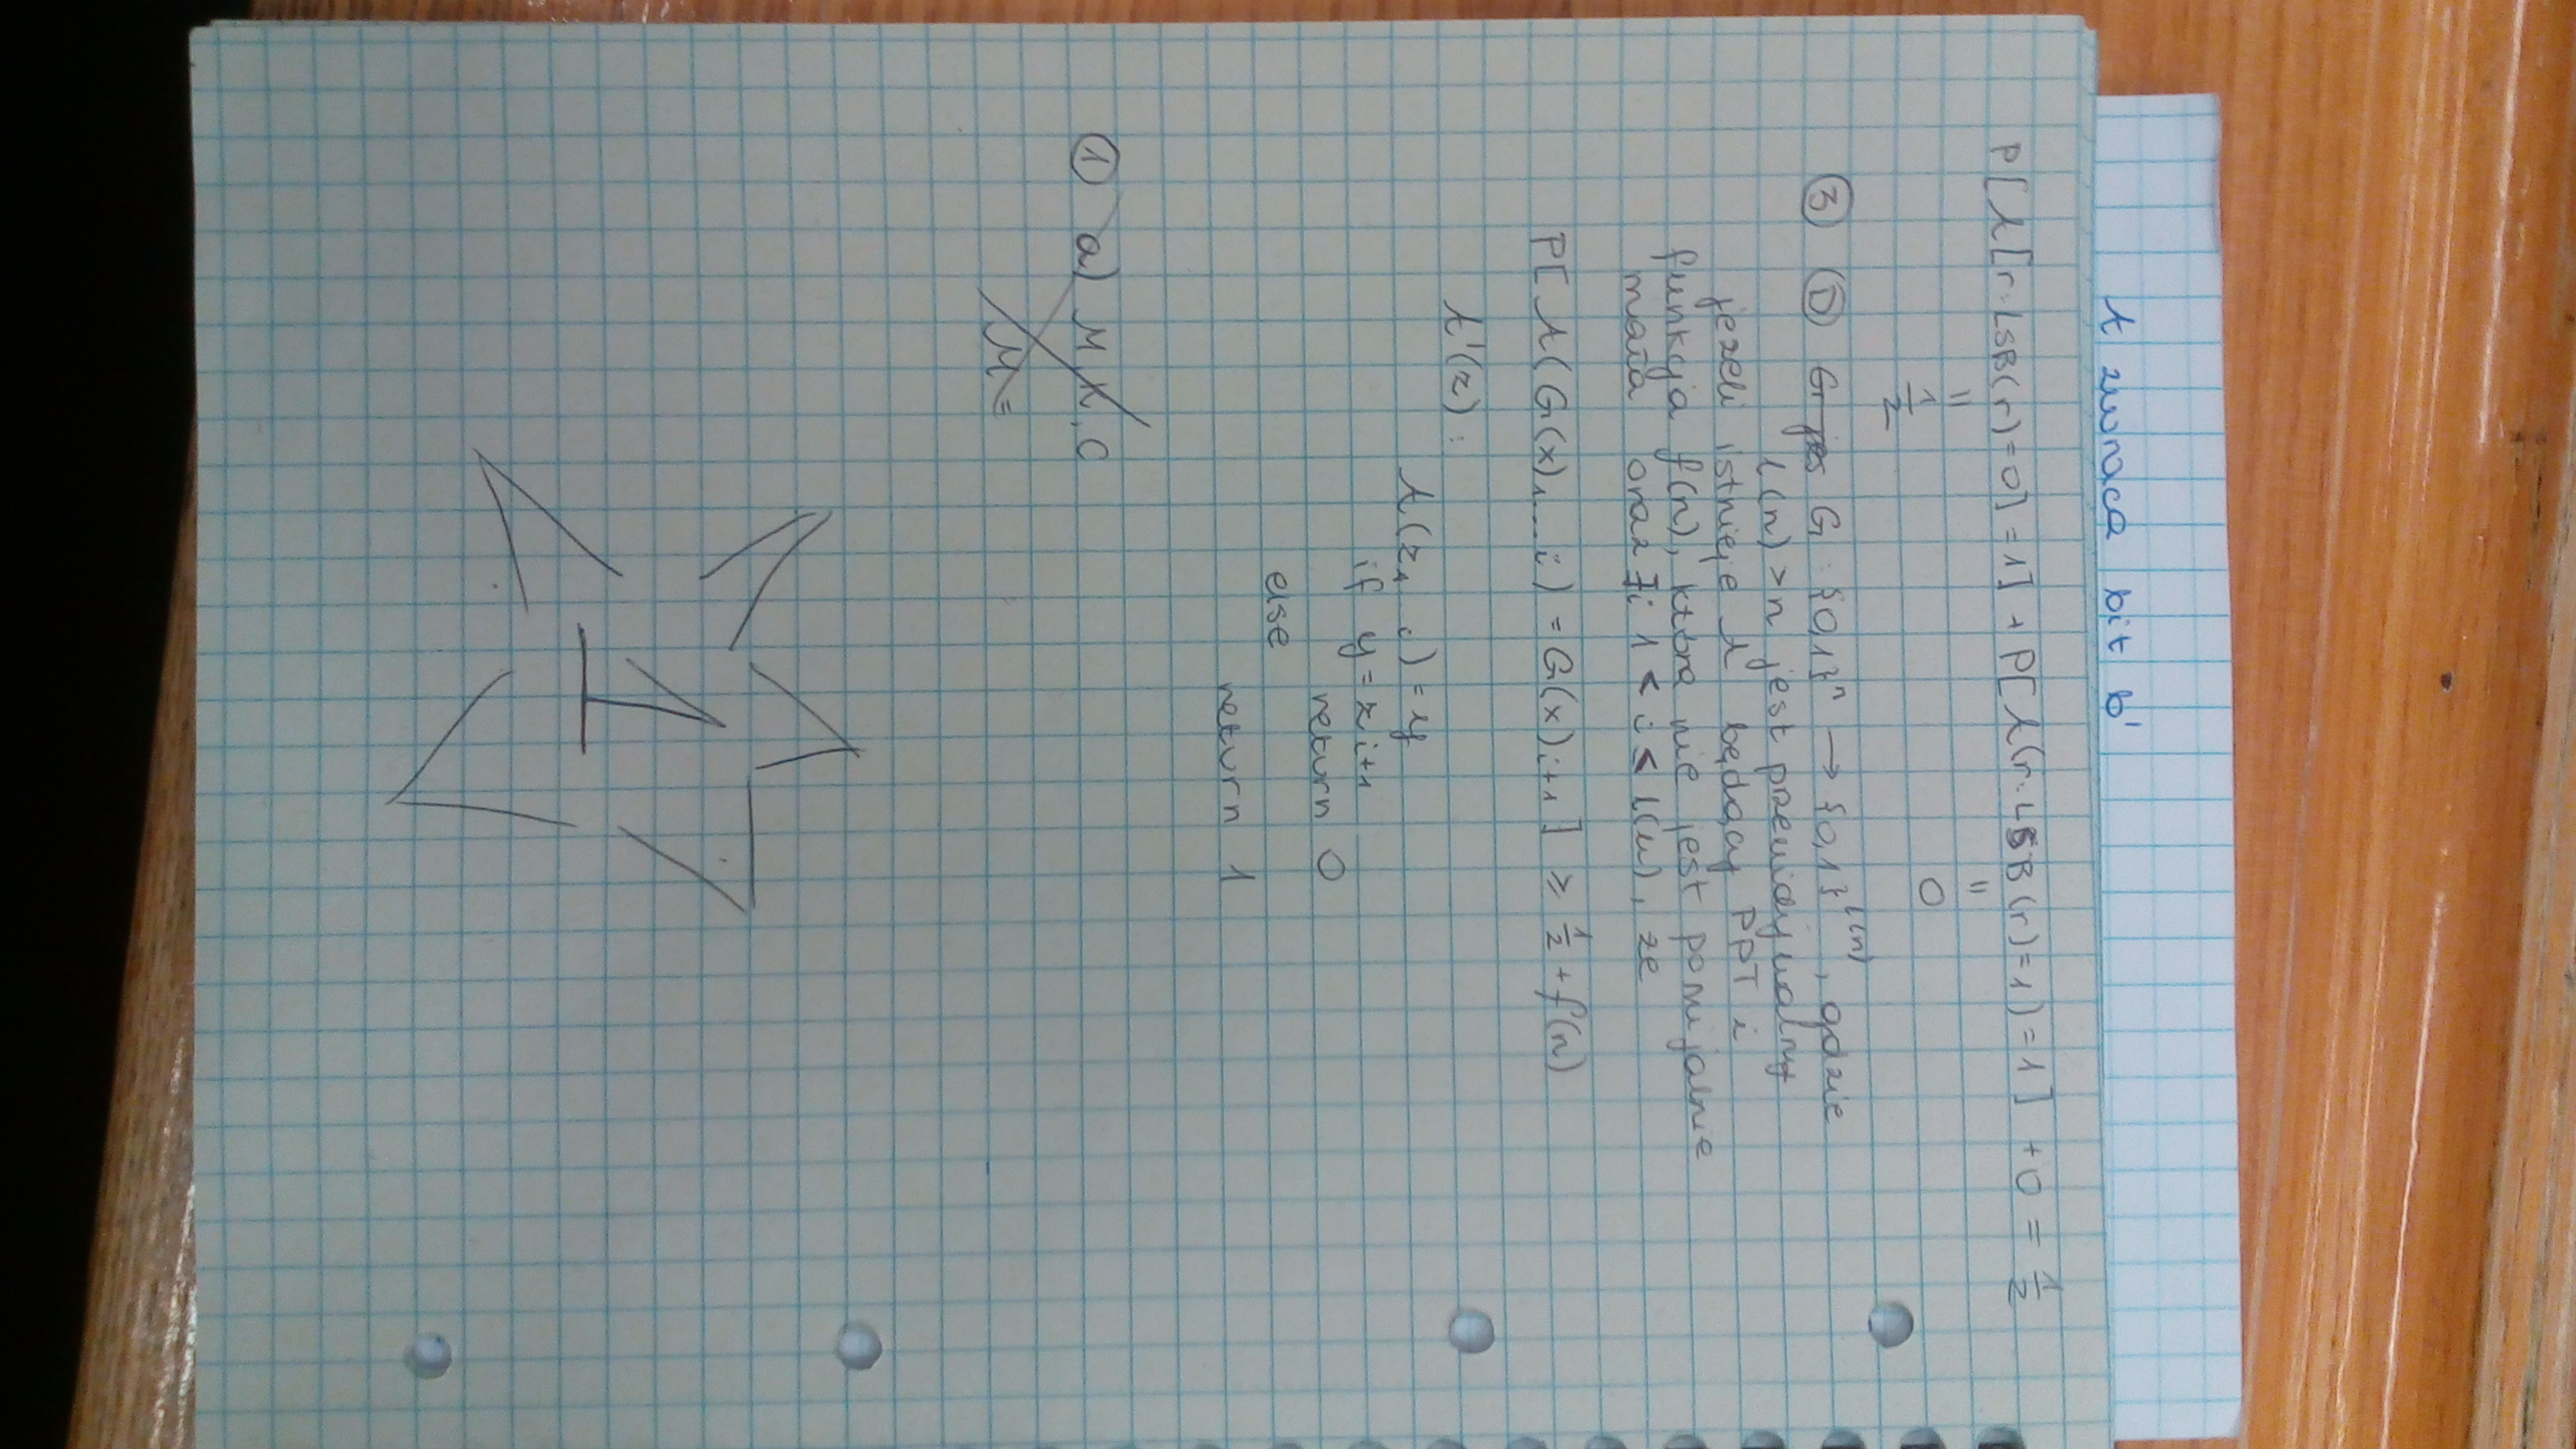 A zwraca bit b'
P[A[r·LSB(r)=0]=1] + P[A(r·LSB(r)=1)=1] + 0 = 1/2
= =
1/2 0
③ Ⓓ G G : {0,1}ⁿ → {0,1}^l(n), gdzie
l(n) > n jest przewidywalny
jeżeli istnieje A będący PPT i
funkcja f(n), która nie jest pomijalnie
mała oraz ∃i 1 < i < l(n), że
P[A(G(x)₁...i) = G(x)i+1] ≥ 1/2 + f(n)
A'(z):
A(z₁ i) = y
if y = zi+1
return 0
else
return 1
① a) M, K, C
M =